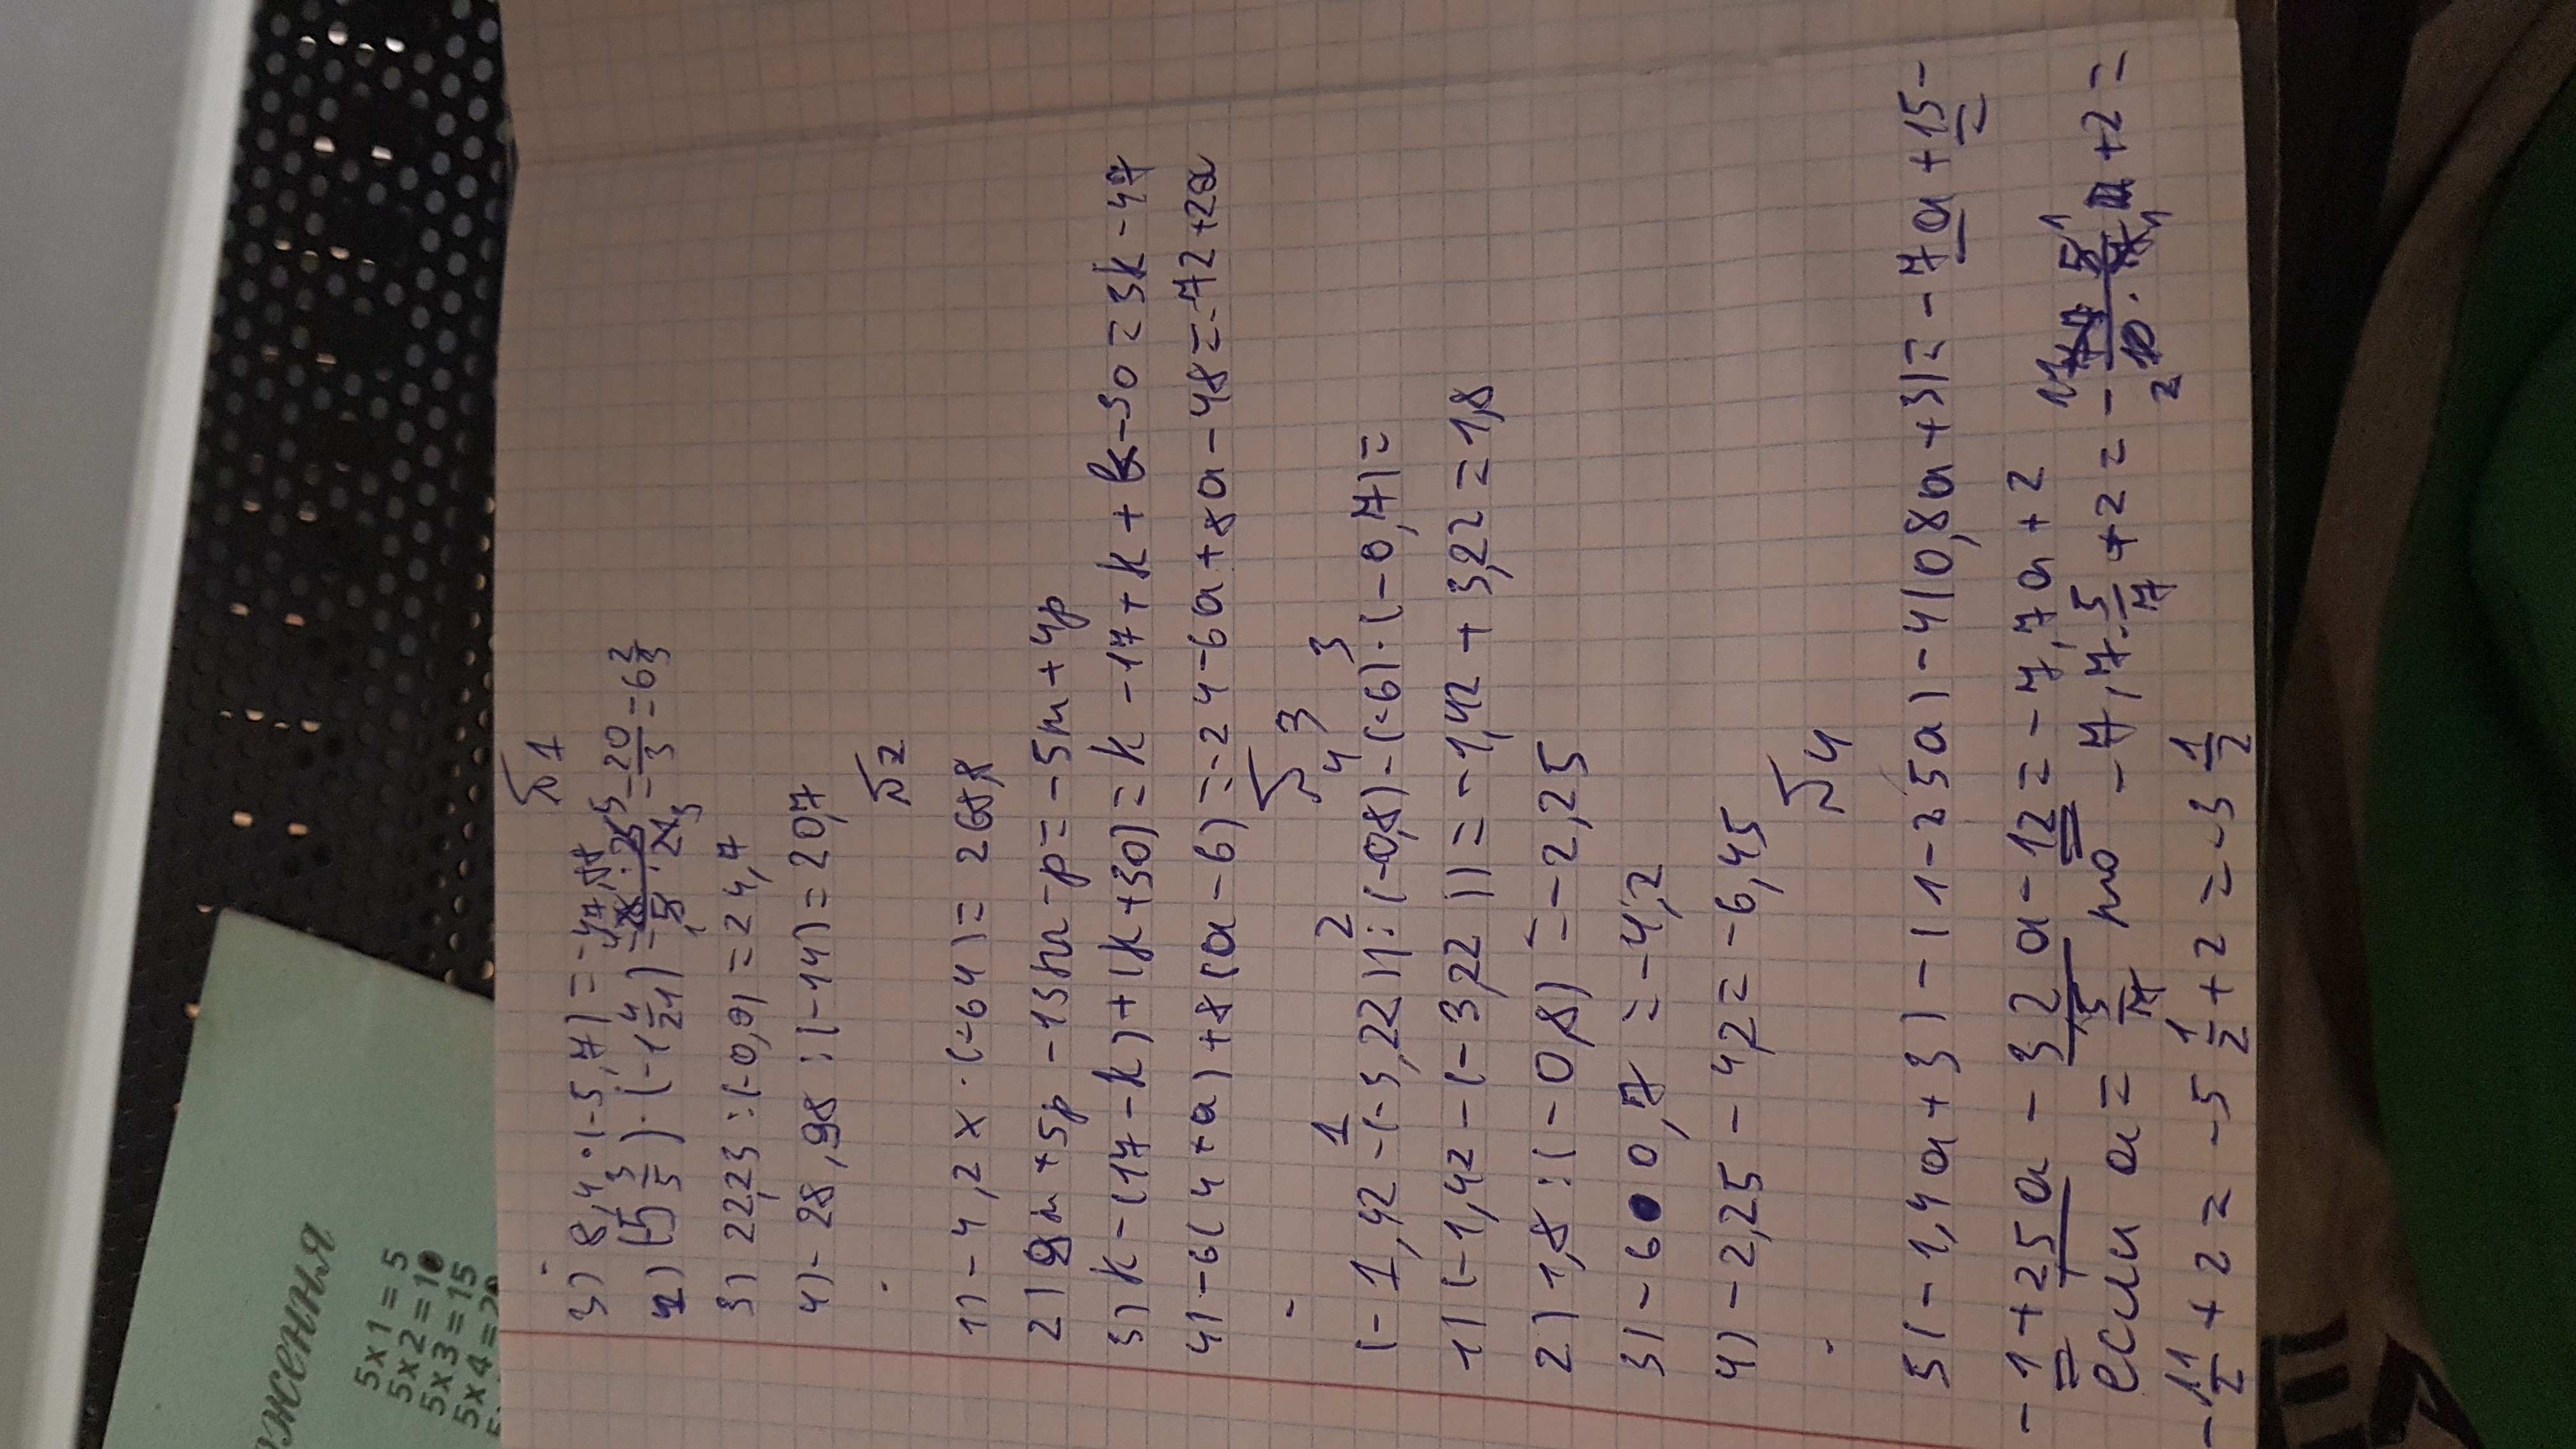 ження
5x1=5
5x2=10
5x3=15
5x4=20
№1
3) 8,4·(-5,7)=-47,88
2) (-5 3/5)·(-1 4/21)=28·25/5·21=20/3=6 2/3
3) 22,23:(-0,9)=24,7
4)-28,98:(-14)=20,7
№2
1) -4,2x·(-64)=268,8
2) 8m+5p-13m-p=-5m+4p
3) k-(17-k)+(k+30)=k-17+k+k-30=3k-47
4) -6(4+a)+8(a-6)=-24-6a+8a-48=-72+2a
№3
1 2 4 3
(-1,42-(-3,22)):(-0,8)-(-6)·(-0,7)=
1) (-1,42-(-3,22))=-1,42+3,22=1,8
2) 1,8:(-0,8)=-2,25
3) -6·0,7=-4,2
4) -2,25-4,2=-6,45
№4
5(-1,4a+3)-(1-25a)-4(0,8a+3)=-7a+15-
-1+25a-3,2a-12=-7,7a+2
если a=5/7 то -7,7·5/7+2=- +2=
-11/2+2=-5 1/2+2=-3 1/2